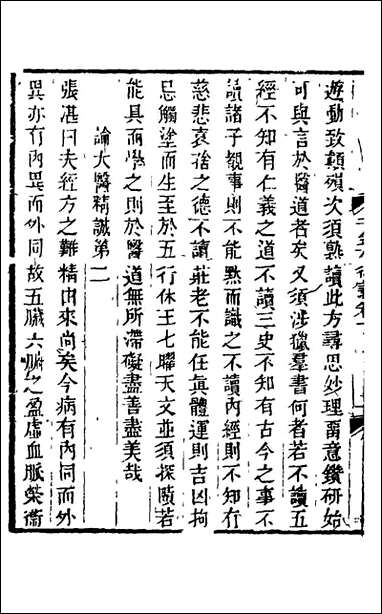 遊動致顛殞次須熟讀此方尋思妙理畱意鑽研始
可與言於醫道者矣又須涉獵羣書何者若不讀五
經不知有仁義之道不讀三史不知有古今之事不
讀諸子覩事則不能黙而識之不讀內經則不知有
慈悲喜捨之德不讀莊老不能任真體運則吉凶拘
忌觸塗而生至於五行休王七曜天文並須探賾若
能具而學之則於醫道無所滯礙盡善盡美哉
論大醫精誠第二
張湛曰夫經方之難精由來尚矣今病有內同而外
異亦有內異而外同故五臟六腑之盈虛血脈榮衞